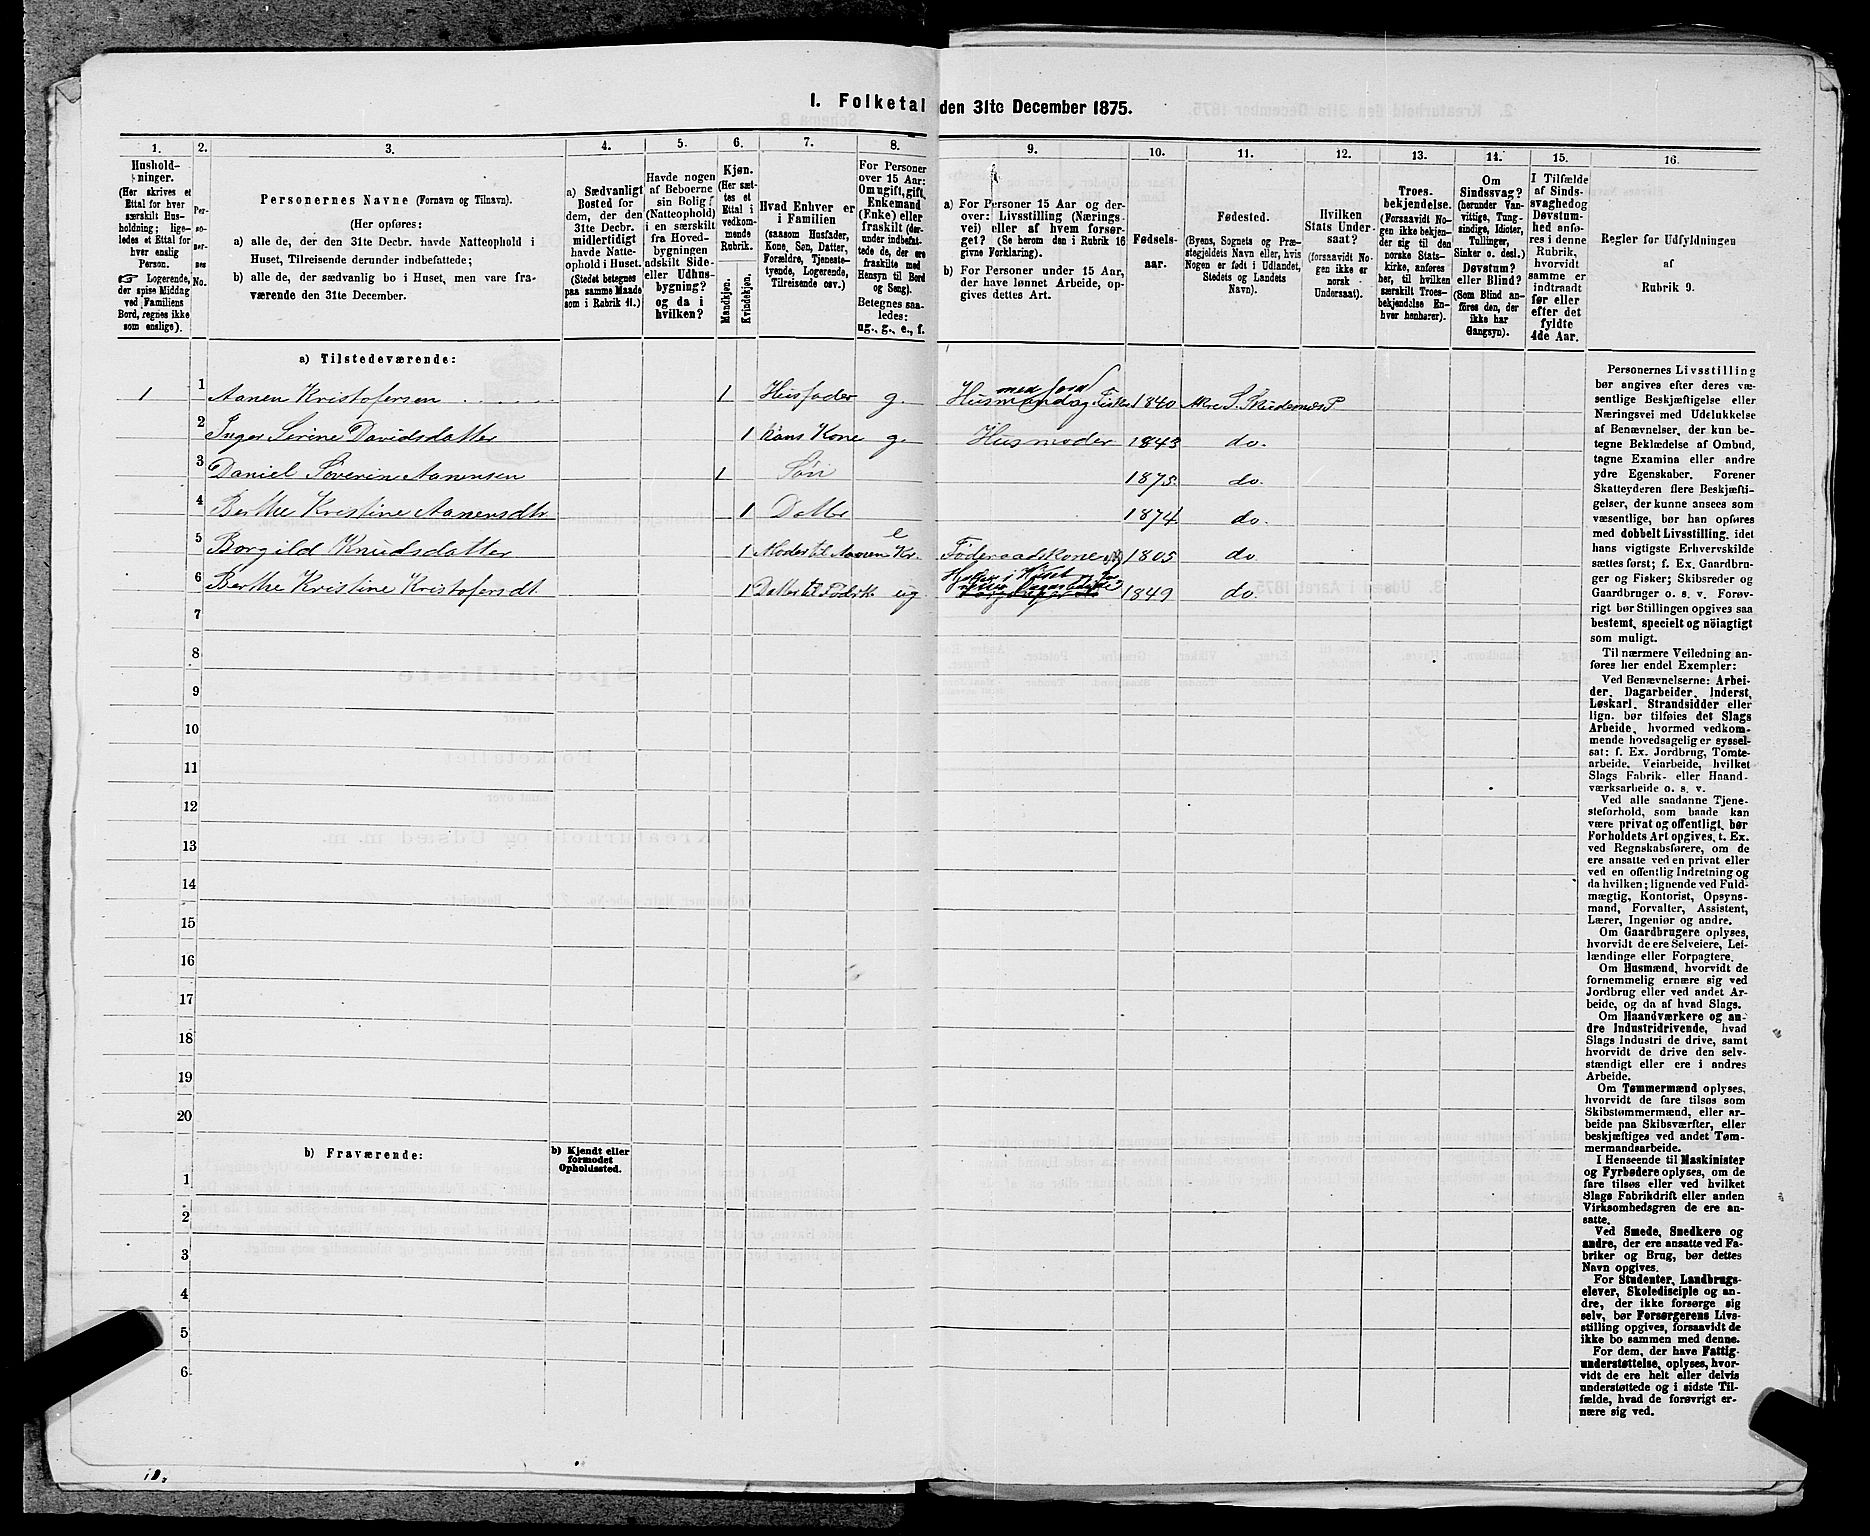 I. Folketal den 31te December 1875.
1. 2. 3. 4. 5. 6. 7. 8. 9. 10. 11. 12. 13. 14. 15. 16.
Hushold-
ninger.
(Her skrives et
Ettal for hver
særskilt Hus-
holdning; lige-
ledes et Ettal for
hver enslig
Person.
☞ Logerende,
der spise Middag
ved Familiens
Bord, regnes ikke
som enslige).
Per-
so-
ner-
nes
No.
Personernes Navne (Fornavn og Tilnavn).
(Her opføres:
a) alle de, der den 31te Decbr. havde Natteophold i
Huset, Tilreisende derunder indbefattede;
b) alle de, der sædvanlig bo i Huset, men vare fra-
værende den 31te December.
a) Sædvanligt
Bosted for
dem, der den
31te Decbr.
midlertidigt
havde Natte-
ophold i Huset.
(Stedet betegnes
paa samme Maade
som i Rubrik 11.)
Havde nogen
af Beboerne
sin Bolig
(Natteophold)
i en særskilt
fra Hoved-
bygningen
adskilt Side-
eller Udhus-
bygning?
og da i
hvilken?
Kjøn.
(Her sæt-
tes et
Ettal i
vedkom-
mende
Rubrik.
Mandkjøn.
Kvindekjøn.
Hvad Enhver er
i Familien
(saasom Husfader,
Kone, Søn, Datter,
Forældre, Tjeneste-
tyende, Logerende,
Tilreisende osv.)
For Personer
over 15 Aar:
Om ugift, gift,
Enkemand
(Enke) eller
fraskilt (der-
under indbefat-
tede de, der ere
fraskilte med
Hensyn til Bord
og Seng).
Betegnes saa-
ledes:
ug., g., e., f.
a) For Personer 15 Aar og der-
over: Livsstilling (Nærings-
vei) eller af hvem forsør-
get? (Se herom den i Rubrik 16
givne Forklaring).
b) For Personer under 15 Aar,
der have lønnet Arbeide, op-
gives dettes Art.
Fødsels-
aar.
Fødested.
(Byens, Sognets og Præ-
stegjeldets Navn eller, hvis
Nogen er født i Udlandet,
Stedets og Landets
Navn).
Hvilken
Stats Under-
saat?
(forsaavidt No-
gen ikke er
norsk
Undersaat).
Troes-
bekjendelse.
(Forsaavidt No-
gen ikke bekjen-
der sig til den
norske Stats-
kirke, anføres
her, til hvilken
særskilt Troes-
bekjendelse En-
hver henhører).
Om
Sindssvag?
(herunder Van-
vittige, Tung-
sindige, Idioter,
Tullinger,
Sinker o. desl.)
Døvstum?
eller Blind?
(Som Blind an-
føres den, der
ikke har
Gangsyn).
I Tilfælde
af Sinds-
svaghed og
Døvstum-
hed anfø-
res i denne
Rubrik,
hvorvidt
samme er
indtraadt
før eller
efter det
fyldte
4de Aar.
Regler for Udfyldningen
af
Rubrik 9.
a) Tilstedeværende:
1 1 Aanen Kristofersen 1 Husfader g. Husmand med Jord og Fisker 1840 Akre S. Skudenes P
2 Inger Serine Davidsdatter 1 hans Kone g. Husmoder 1843 do.
3 Daniel Søverin Aanensen 1 Søn 1875 do.
4 Berthe Kristine Aanensdtr 1 Datter 1874 do.
5 Borgild Knudsdatter 1 Moder til Aanen Kr. e Føderaadskone 1805 do.
6 Berthe Kristine Kristofersdt. 1 Datter til Føderk ug Hjælper i Huset 1849 do.
7
8
9
10
11
12
13
14
15
16
17
18
19
20
b) Fraværende:
b) Kjendt eller
formodet
Opholdssted.
1
2
3
4
5
6
Personernes Livsstilling
bør angives efter deres væ-
sentlige Beskjæftigelse eller
Næringsvei med Udelukkelse
af Benævnelser, der kun be-
tegne Beklædelse af Ombud,
tagne Examina eller andre
ydre Egenskaber. Forener
Skatteyderen flere Beskjæfti-
gelser, der kunne ansees som
væsentlige, bør han opføres
med dobbelt Livsstilling, idet
hans vigtigste Erhvervskilde
sættes først; f. Ex. Gaardbru-
ger og Fisker; Skibsreder og
Gaardbruger o. s. v. Forøv-
rigt bør Stillingen opgives saa
bestemt, specielt og nöiagtigt
som muligt.
Til nærmere Veiledning an-
føres her endel Exempler:
Ved Benævnelserne: Arbei-
der, Dagarbeider, Inderst,
Løskarl, Strandsidder eller
lign. bør tilføies det Slags
Arbeide, hvormed vedkom-
mende hovedsagelig er syssel-
sat: f. Ex. Jordbrug, Tomte-
arbeide, Veiarbeide, hvilket
Slags Fabrik- eller Haand-
værksarbeide o. s. v.
Ved alle saadanne Tjene-
steforhold, som baade kan
være privat og offentligt, bør
Forholdets Art opgives, t. Ex.
ved Regnskabsførere, om de
ere ansatte ved en privat eller
ved en offentlig Indretning og
da hvilken; lignende ved Fuld-
mægtig, Kontorist, Opsyns-
mand, Forvalter, Assistent,
Lærer, Ingeniør og andre.
Om Gaardbrugere oplyses,
hvorvidt de ere Selveiere, Lei-
lændinge eller Forpagtere.
Om Husmænd, hvorvidt de
fornemmelig ernære sig ved
Jordbrug eller ved andet Ar-
beide, og da af hvad Slags.
Om Haandværkere og an-
dre Industridrivende, hvad
Slags Industri de drive, samt
hvorvidt de drive den selv-
stændigt eller ere i andres
Arbeide.
Om Tømmermænd oplyses,
hvorvidt de fare tilsøs som
Skibstømmermænd, eller ar-
beide paa Skibsværfter, eller
beskjæftiges ved andet Tøm-
mermandsarbeide.
I Henseende til Maskinister
og Fyrbødere oplyses, om de
fare tilsøs eller ved hvilket
Slags Fabrikdrift eller anden
Virksomhedsgren de ere an-
satte.
Ved Smede, Snedkere og
andre, der ere ansatte ved Fa-
briker og Brug, bør dettes
Navn opgives.
For Studenter, Landbrugs-
elever, Skoledisciple og an-
dre, der ikke forsørge sig
selv, bør Forsørgerens Livs-
stilling opgives, forsaavidt de
ikke bo sammen med denne.
For dem, der have Fattig-
understøttelse, oplyses, hvor-
vidt de ere helt eller delvis
understøttede og i sidste Til-
fælde, hvad de forøvrigt er-
nære sig ved.